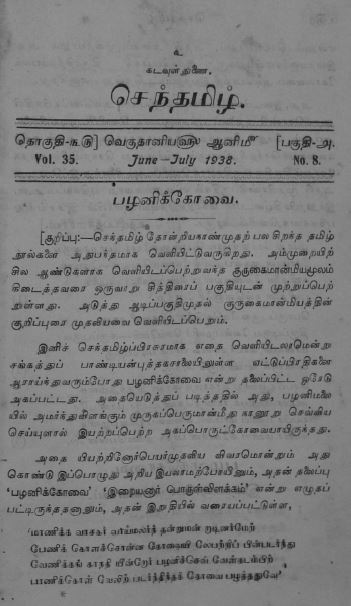 உ
கடவுள் துணை.
செந்தமிழ்.
தொகுதி-௩௫] வெகுதானிய ஆனிமீ [பகுதி-அ.
Vol. 35. June—July 1938. No. 8.
பழனிக்கோவை.
[குறிப்பு:—செந்தமிழ் தோன்றியகாண்முதற் பல சிறந்த தமிழ்
நூல்களை அதுபந்தமாக வெளியிட்டுவருகிறது. அம்முறையிற்
சில ஆண்டுகளாக வெளியிடப்பெற்றுவந்த குருகைமான்மியமூலம்
கிடைத்தவரை ஒருவாறு சித்திரைப் பகுதியுடன் முற்றப்பெற்
றுள்ளது. அடுத்து ஆடிப்பகுதிமுதல் குருகைமான்மியத்தின்
குறிப்புரை முதலியவை வெளியிடப்பெறும்.
இனிச் செந்தமிழ்ப்பிரசாரமாக எதை வெளியிடலாமென்று
சங்கத்துப் பாண்டியன்புத்தகசாலையிலுள்ள ஏட்டுப்பிரதிகளை
ஆராய்ந்துவரும்போது பழனிக்கோவை என்று தலைப்பிட்ட ஒரேடு
அகப்பட்டது. அதையெடுத்துப் படித்ததில் அது, பழனிமலை
யில் அமர்ந்துவிளங்கும் முருகப்பெருமான்மீது நானூறு செவ்விய
செய்யுளால் இயற்றப்பெற்ற அகப்பொருட்கோவையாயிருந்தது.
அதை யியற்றினோர்பெயர்முதலிய விவரமொன்றும் அது
கொண்டு இப்பொழுது அறிய இயலாமற்போயினும், அதன் தலைப்பு
'பழனிக்கோவை' 'இறையனார் பொருள்விளக்கம்' என்று எழுதப்
பட்டிருந்ததனாலும், அதன் இறுதியில் வரையப்பட்டுள்ள,
'மாணிக்க வாசகர் வாய்மலர்ந் தன்றுமன் றாடினர்மேற்
பேணிக் கொளச்சொன்ன கோவையி லேபற்றிப் பின்படர்ந்து
வேணிக்கங் காநதி யின்றேர் பழனிச்செவ் வேள்தடம்பிற்
பாணிக்கொள் வேலிற் படர்ந்தித்தக் கோவை பழுத்ததுவே'